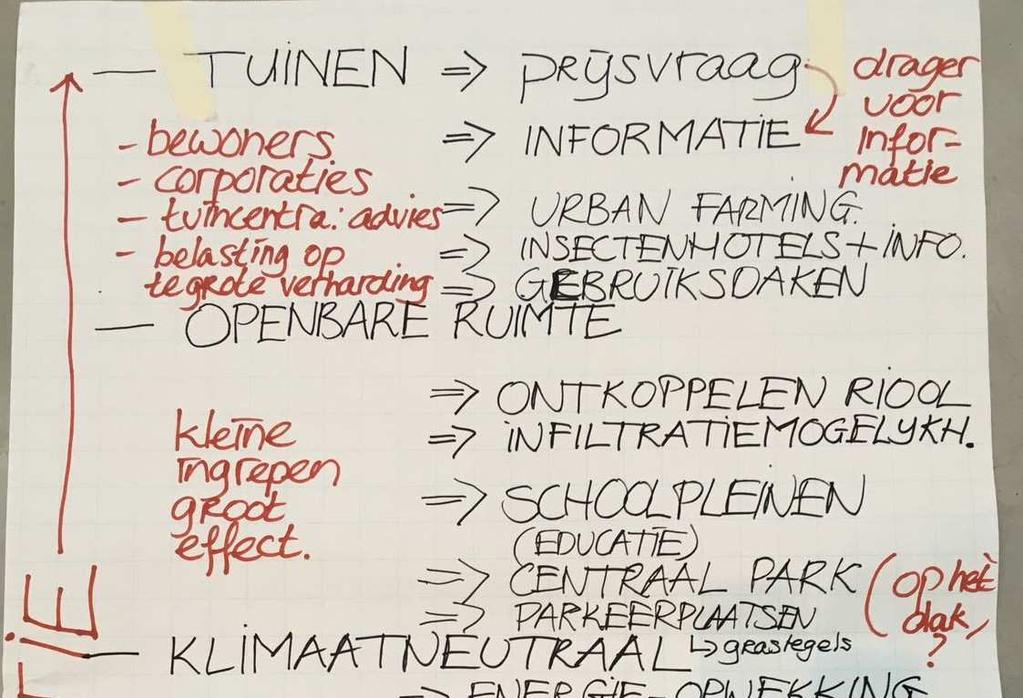 — TUINEN => prijsvraag
drager
voor
infor-
matie
- bewoners => INFORMATIE
- corporaties
- tuincentra: advies => URBAN FARMING.
- belasting op => INSECTENHOTELS + INFO.
te grote verharding => GEBRUIKSDAKEN
— OPENBARE RUIMTE
=> ONTKOPPELEN RIOOL
=> INFILTRATIEMOGELYKH.
kleine
ingrepen
groot
effect.
=> SCHOOLPLEINEN
(EDUCATIE)
=> CENTRAAL PARK
=> PARKEERPLAATSEN
(op het
dak,
?
↳ grastegels
— KLIMAATNEUTRAAL
=> ENERGIE-OPWEKKING